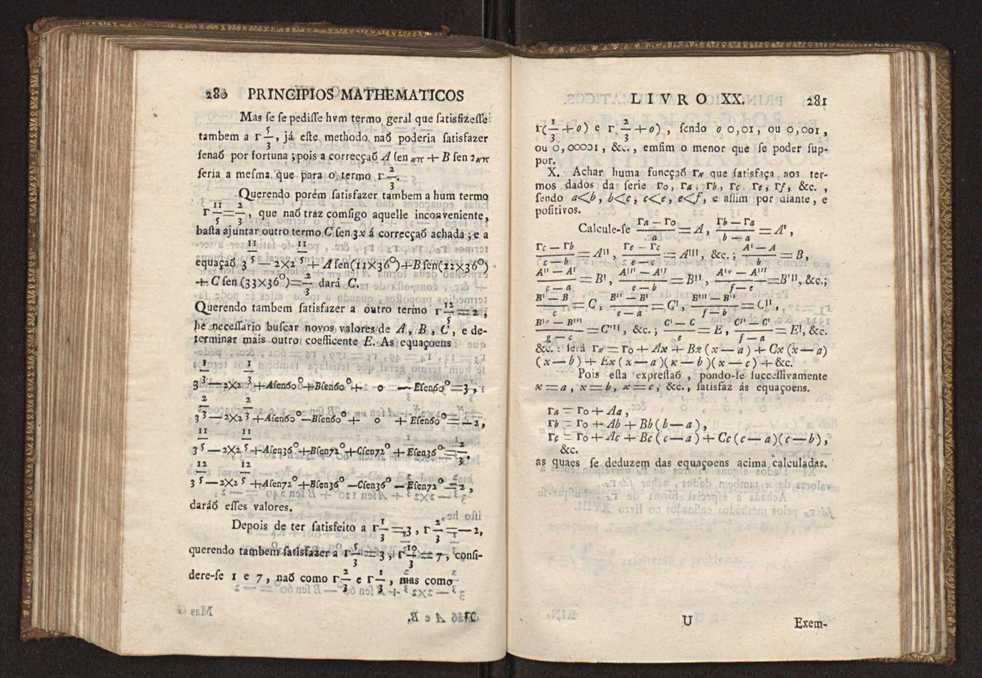 280 PRINCIPIOS MATHEMATICOS
Mas se se pedisse hvm termo geral que satisfizesse
tambem a Γ 5/3, já este methodo naõ poderia satisfazer
senaõ por fortuna; pois a correcçaõ A sen nπ + B sen 2nπ
seria a mesma que para o termo Γ 2/3.
Querendo porém satisfazer tambem a hum termo
Γ 11/5 = 2/3, que naõ traz comsigo aquelle inconveniente,
basta ajuntar outro termo C sen 3x á correcçaõ achada; e a
equaçaõ 3^11/5 — 2×2^11/5 + A sen(11×36°)+B sen(22×36°)
+ C sen (33×36°)= 2/3 dará C.
Querendo tambem satisfazer a outro termo Γ 12/5 = 2,
he necessario buscar novos valores de A, B, C, e de-
terminar mais outro coefficente E. As equaçoens
3^1/3 — 2×2^1/3 + Asen60°+Bsen60°+ 0 — Esen60°=3,
3^2/3 — 2×2^2/3 + Asen60°—Bsen60° + 0 + Esen60°=—2,
3^11/5 — 2×2^11/5 + Asen36°+Bsen72°+Csen72°+Esen36°= 2/3,
3^12/5 — 2×2^12/5 + Asen72°+Bsen36°—Csen36°— Esen72°=2,
daráõ esses valores.
Depois de ter satisfeito a Γ 1/3 = 3, Γ 2/3 = —2,
querendo tambem satisfazer a Γ 5/3 = 3, Γ 10/3 = 7, consi-
dere-se 1 e 7, naõ como Γ 2/3 e Γ 1/3, mas como
LIVRO XX. 281
Γ( 1/3 + o) e Γ( 2/3 + o), sendo o 0,01, ou 0,001,
ou 0,00001, &c., emfim o menor que se poder sup-
por.
X. Achar huma funcçaõ Γx que satisfaça aos ter-
mos dados da serie Γ0, Γa, Γb, Γc, Γe, Γf, &c.,
sendo a<b, b<c, c<e, e<f, e assim por diante, e
positivos.
Calcule-se (Γa — Γ0)/a = A, (Γb — Γa)/(b — a) = A',
(Γc — Γb)/(c — b) = A'', (Γe — Γc)/(e — c) = A''', &c.; (A' — A)/b = B,
(A'' — A')/(c — a) = B', (A''' — A'')/(e — b) = B'', (A'''' — A''')/(f — c) = B''', &c.;
(B' — B)/c = C, (B'' — B')/(e — a) = C', (B''' — B'')/(f — b) = C'',
(B'''' — B''')/(g — c) = C''', &c.; (C' — C)/e = E, (C'' — C')/(f — a) = E', &c.
&c.: será Γx = Γ0 + Ax + Bx (x — a) + Cx (x — a)
(x — b) + Ex (x — a)(x — b)(x — c) + &c.
Pois esta expressaõ, pondo-se successivamente
x = a, x = b, x = c, &c., satisfaz ás equaçoens.
Γa = Γ0 + Aa,
Γb = Γ0 + Ab + Bb (b — a),
Γc = Γ0 + Ac + Bc (c — a) + Cc (c — a)(c — b),
&c.
as quaes se deduzem das equaçoens acima calculadas.
U Exem-